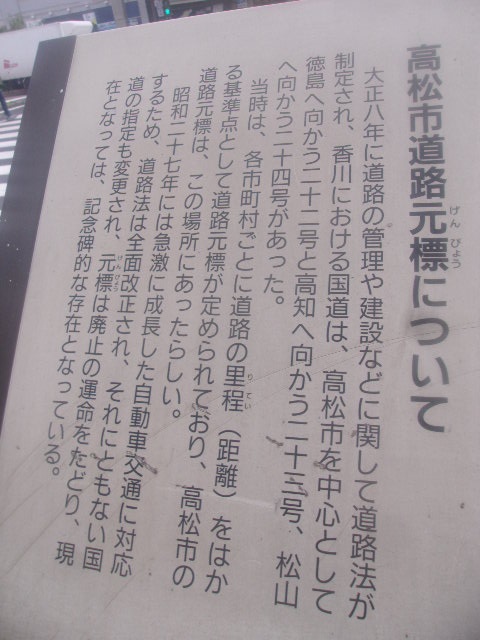 高松市道路元標について
げん ぴょう
大正八年に道路の管理や建設などに関して道路法が
制定され、香川における国道は、高松市を中心として
徳島へ向かう二十二号と高知へ向かう二十三号、松山
へ向かう二十四号があった。
当時は、各市町村ごとに道路の里程（距離）をはか
り てい
る基準点として道路元標が定められており、高松市の
道路元標は、この場所にあったらしい。
昭和二十七年には急激に成長した自動車交通に対応
するため、道路法は全面改正され、それにともない国
道の指定も変更され、元標は廃止の運命をたどり、現
げんぴょう
在となっては、記念碑的な存在となっている。